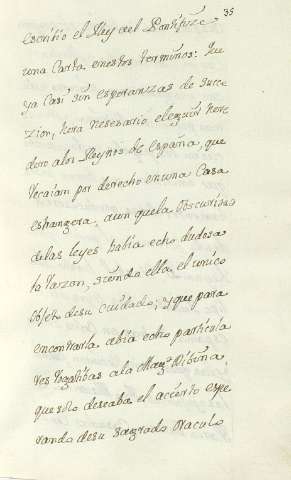 35
escritio el Rey al Pontifize
una Carta enestos terminos: Que
ya Casi sin esperanzas de suce
zion, hera nesesario elegir here
dero alos Reynos de España, que
recaian por derecho enuna Casa
estrangera, aun quela obscuridad
delas leyes habia echo dudosa
la razon, siendo ella el unico
objeto desu cuidado; y que para
encontrarla abia echo particula
res rogatibas ala Mag.d Dibina,
que solo deseaba el acierto espe
rando desu sagrado oraculo